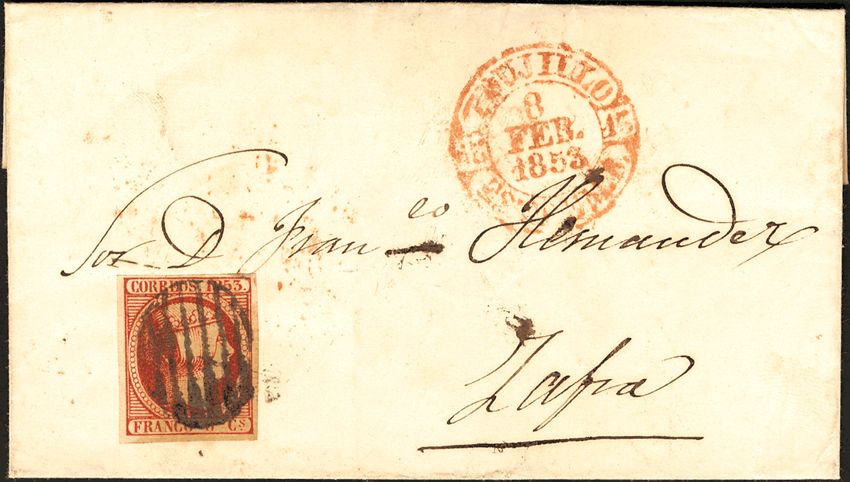 TRUJILLO
8
FEB.
1853
Sor. D Fran co Hernandez
Zafra
CORREOS 1853.
FRANCO Cs